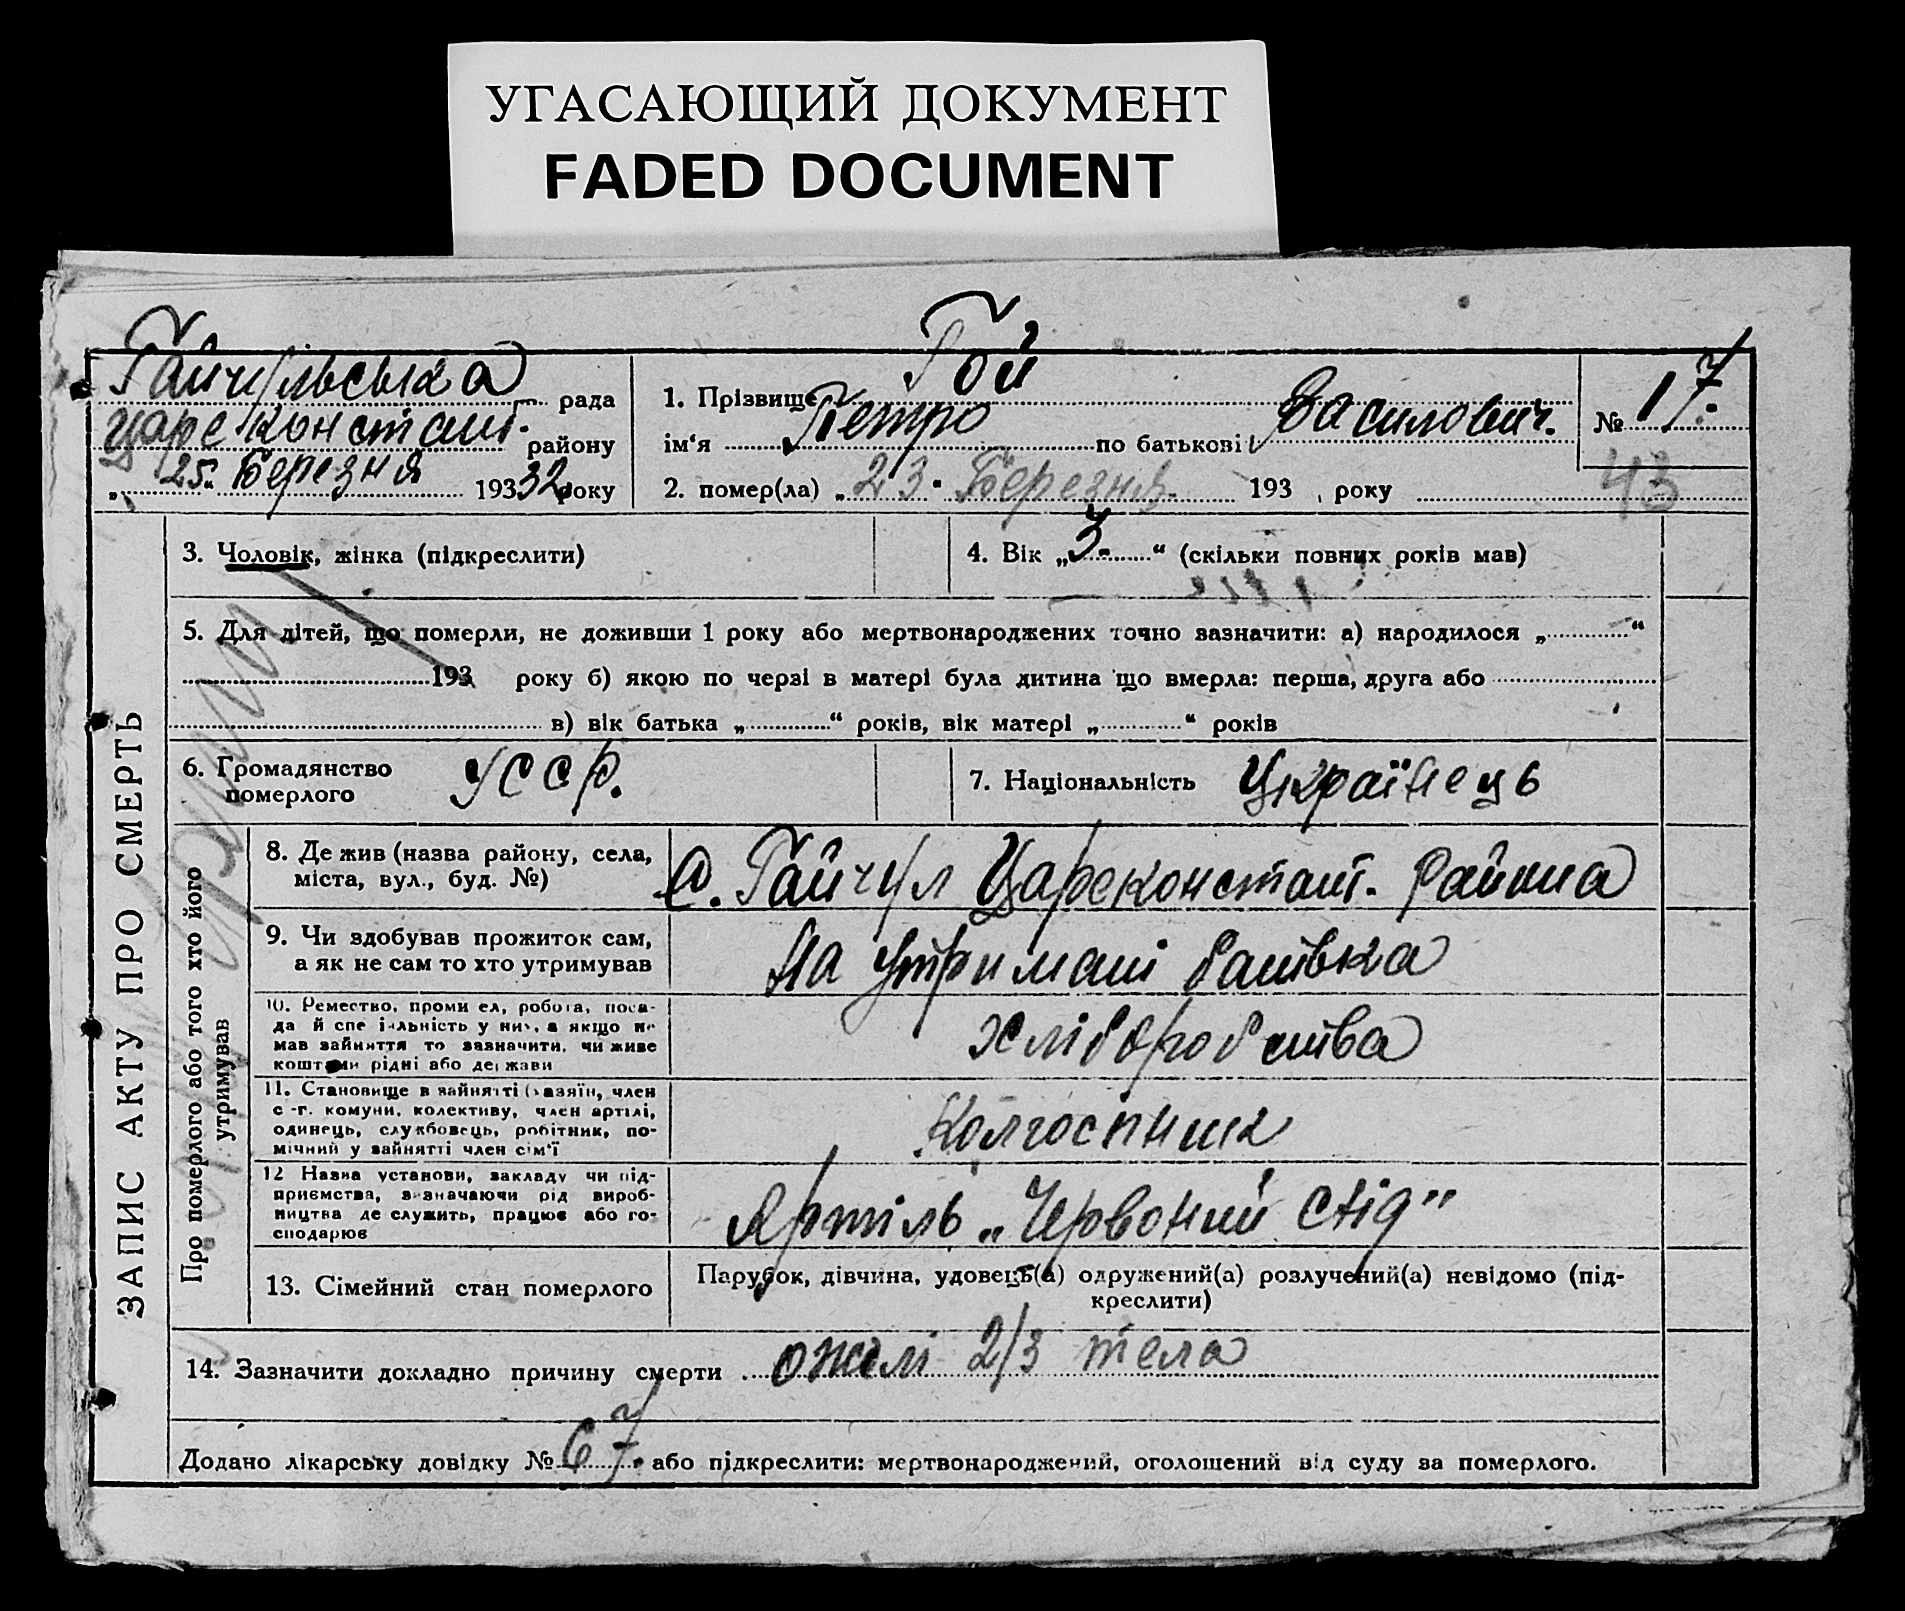 УГАСАЮЩИЙ ДОКУМЕНТ
FADED DOCUMENT
Гайчульська рада
Царекконстант. району
„ 25. Березня 193 32 року
1. Прізвище Гой
ім‘я Петро по батькові Василович.
2. помер(ла) „ 23. Березня. 193 , року
№ 17.
43
ЗАПИС АКТУ ПРО СМЕРТЬ
3. Чоловік, жінка (підкреслити)
4. Вік „3.“ (скільки повних років мав)
5. Для дітей, що померли, не доживши 1 року або мертвонароджених точно зазначити: а) народилося „ “
193 року б) якою по черзі в матері була дитина що вмерла: перша, друга або
в) вік батька „ “ років, вік матері „ “ років
6. Громадянство
померлого УССР.
7. Національність Українець
Про померлого або того хто його
утримував
8. Де жив (назва району, села,
міста, вул., буд. №)
с. Гайчул Царсконстант. Района
9. Чи здобував прожиток сам,
а як не сам то хто утримував
На утримані батька
10. Ремество, проми ел, робота, поса-
да й спе і-льність у них, а якщо не
мав зайняття то зазначити, чи живе
коштами рідні або держави
Хліборобства
11. Становище в зайнятті (хазяїн, член
с -г. комуни, колективу, член артілі,
одинець, службовець, робітник, по-
мічний у зайнятті член сім‘ї
Колгоспник
12 Назва установи, закладу чи під-
приємства, визначаючи рід вироб-
ництва де служить, працює або го-
сподарює
Артіль „Червоний Схід"
13. Сімейний стан померлого
Парубок, дівчина, удовець(а) одружений(а) розлучений(а) невідомо (під-
креслити)
14. Зазначити докладно причину смерти ожелі 2/3 тела
Додано лікарську довідку № 67. або підкреслити: мертвонароджений, оголошений від суду за померлого.